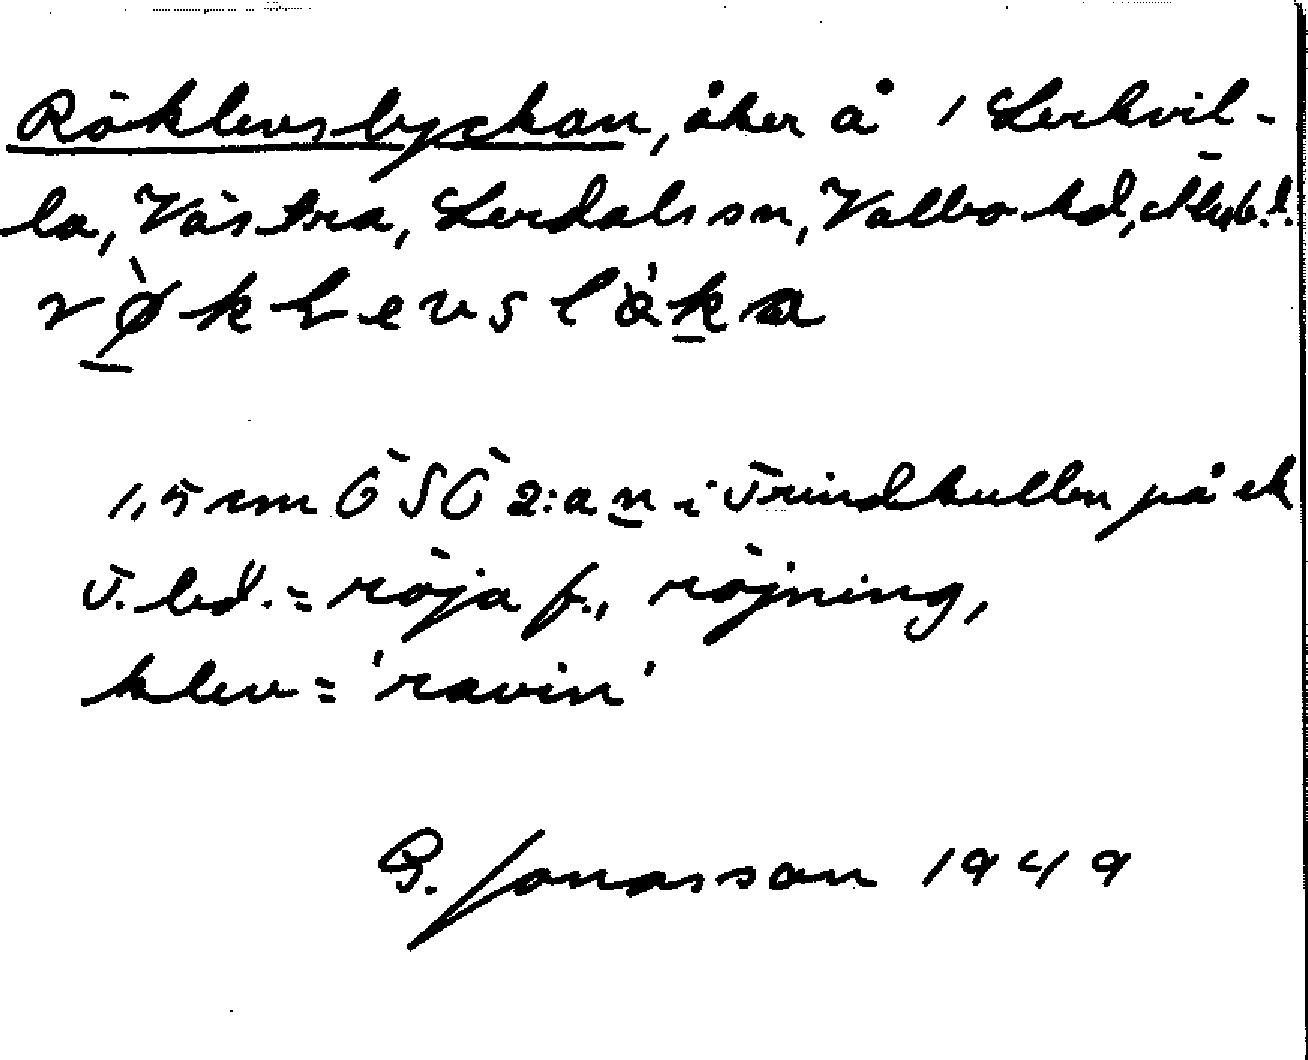 Röklevslyckan, åker å 1 Lerkvil-
la, Västra, Lerdals sn, Valbo hd, Älvsb.l.
røklevslåka
1,5 cm ÖSÖ 2:an i Trindkullen på ek
F. led. = röja f., röjning,
klev = 'ravin'
G. Jonasson 1949